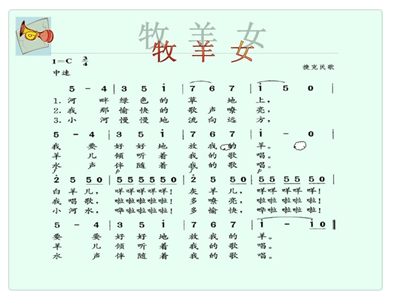 牧 羊 女
牧 羊 女
1=C 3/4
捷克民歌
中速
5 - 4 | 3 5 i | 7 6 7 | i 5 0
1.河 畔 绿 色 的 草 地 上,
2.我 那 愉 快 的 歌 声 嘹 亮
3.小 河 慢 慢 地 流 向 远 方
5 - 4 | 3 5 i | 7 6 7 | i - 0
我 要 好 好 地 放 我 的 羊。
羊 儿 倾 听 着 我 的 歌 唱。
水 声 伴 随 着 我 的 歌 唱。
2 5 5 0 | 5 5 5 5 5 5 | 2 5 5 0 | 5 5 5 5 5 5
白羊儿, 咩咩咩! 灰羊儿, 咩咩咩!
我歌唱, 啦啦啦! 多嘹亮, 啦啦啦!
小河水, 啦啦! 多愉快, 啦啦!
5 - 4 | 3 5 i | 7 6 7 | i - i 0
我 要 好 好 地 放 我 的 羊。
羊 儿 倾 听 着 我 的 歌 唱。
水 声 伴 随 着 我 的 歌 唱。